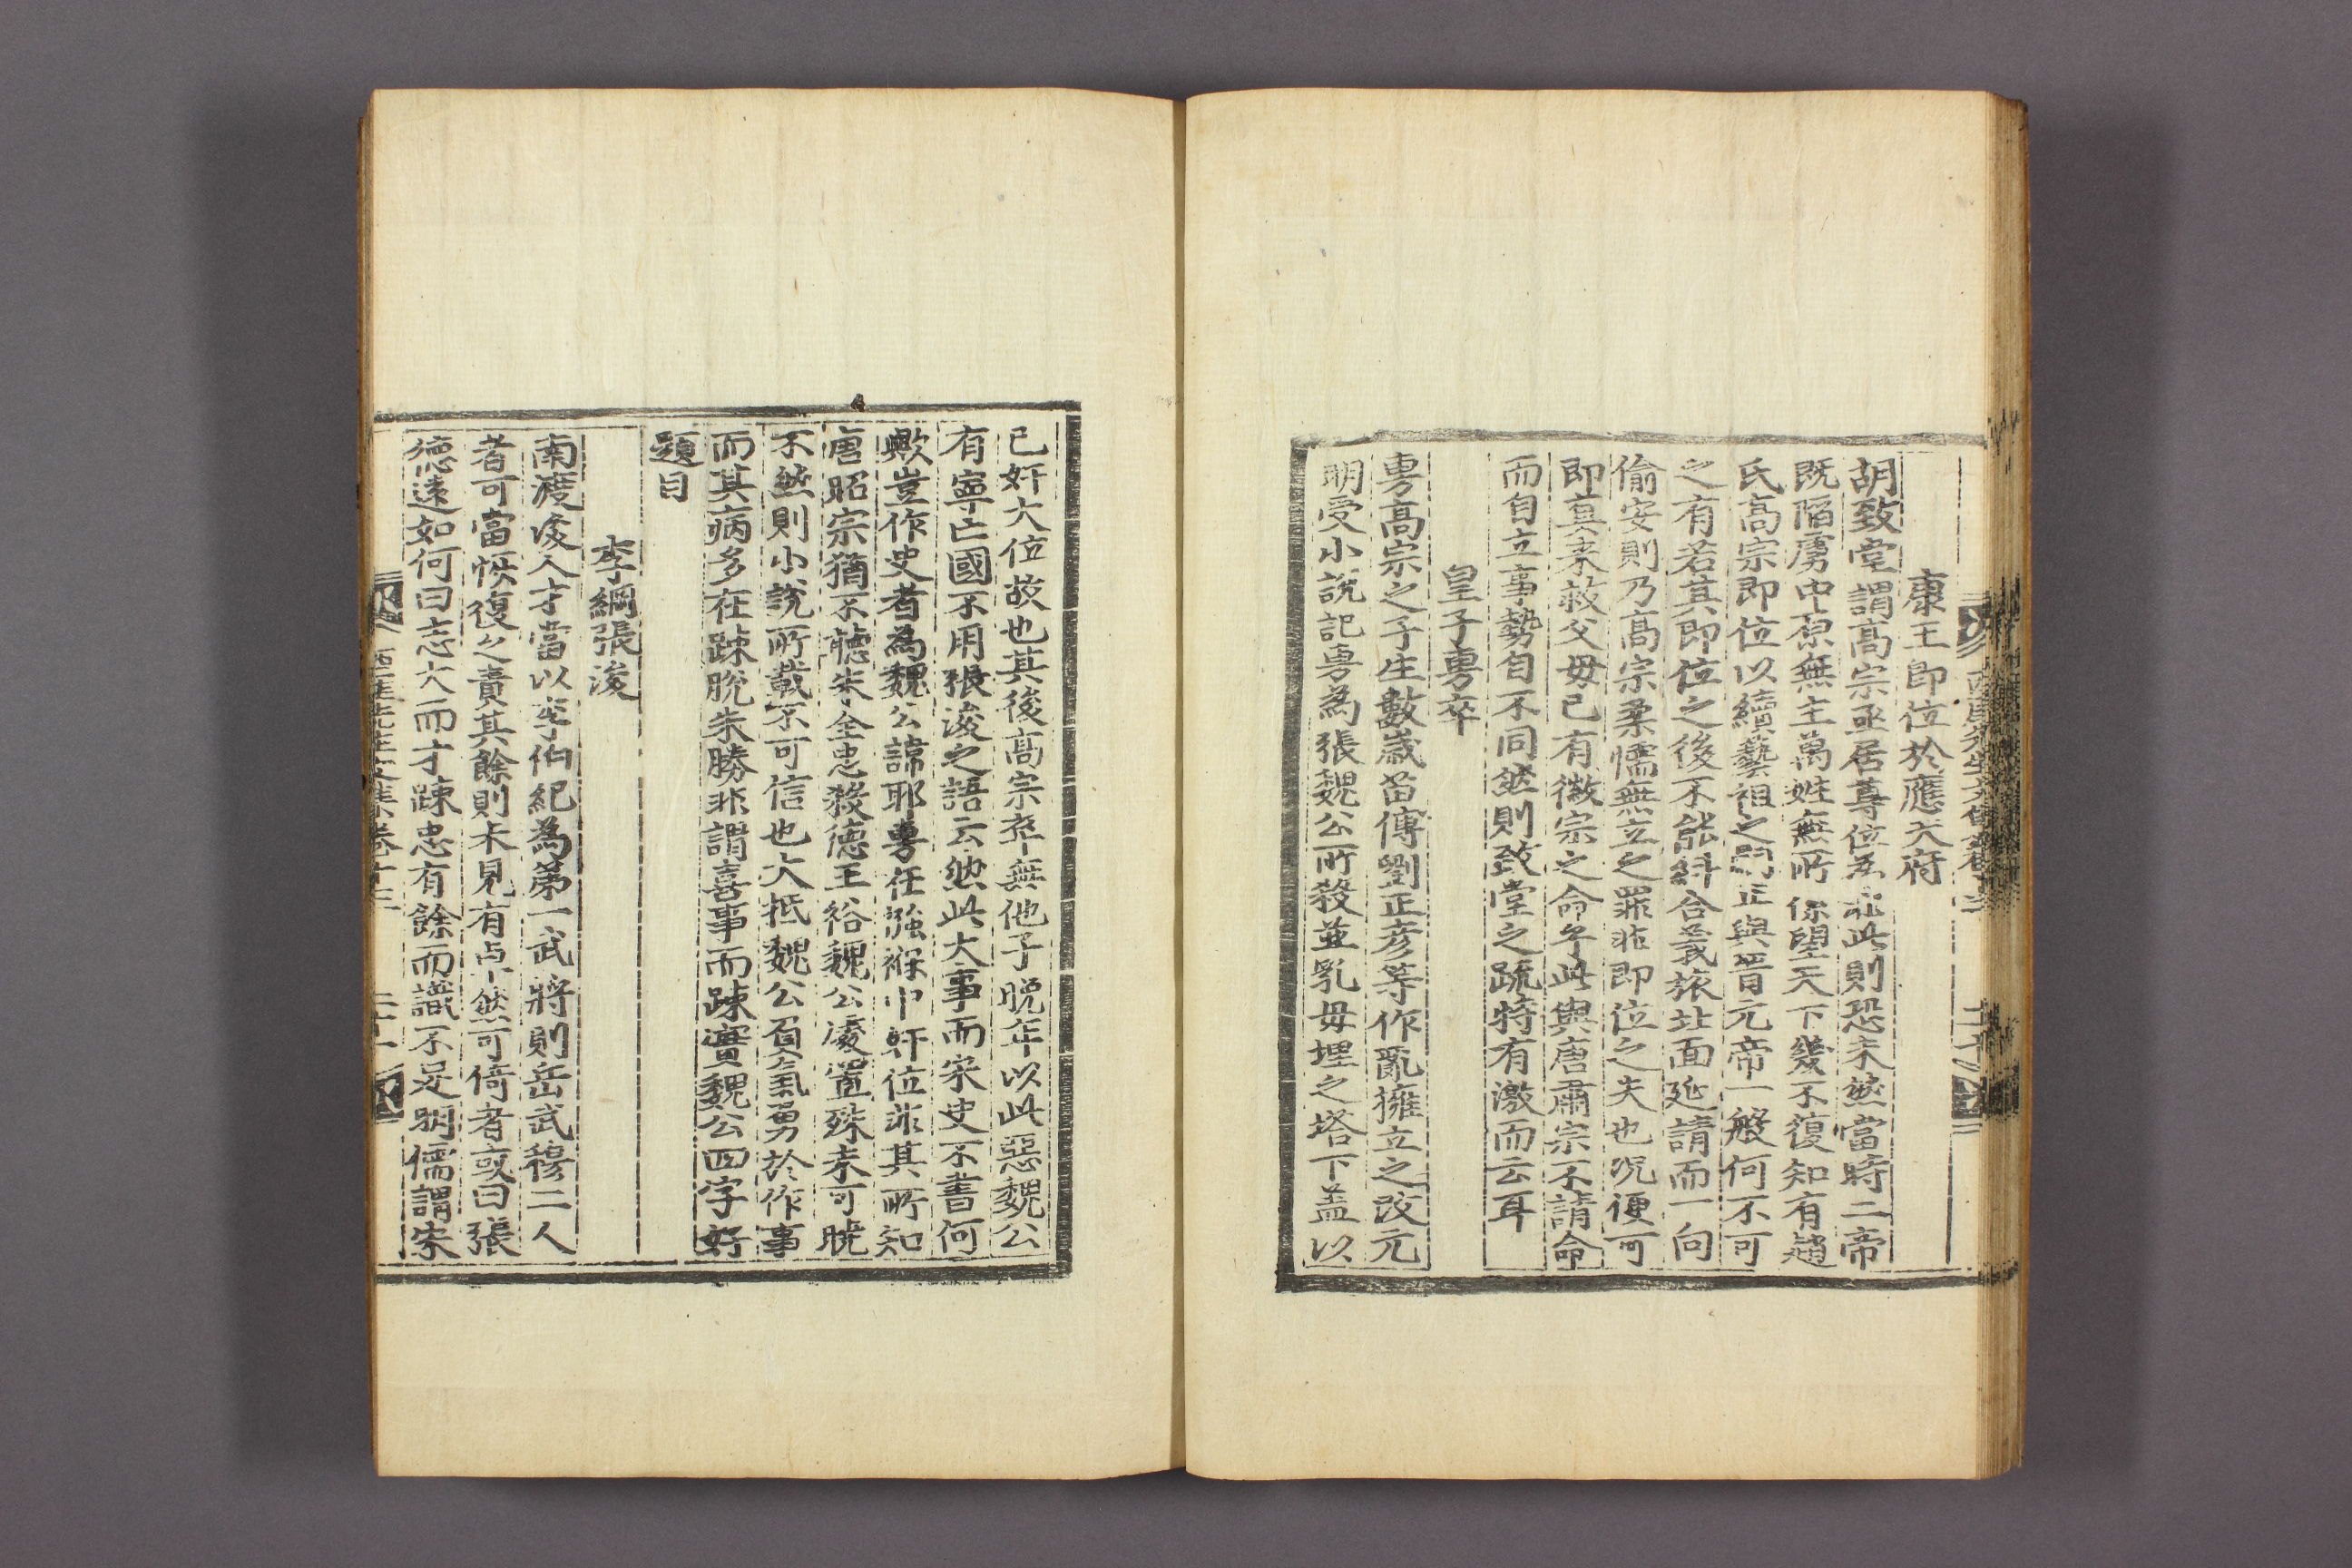 康王即位於應天府
胡致堂謂高宗亟居尊位爲非此則恐未然當時二帝
既陷虜中原無主萬姓無所係望天下幾不復知有趙
氏高宗即位以續藝祖之嗣正與晉元帝一般何不可
之有若其即位之後不能糾合義旅北面延請而一向
偷安則乃高宗柔懦無立之罪非即位之失也況便可
即真來救父母已有徽宗之命乎此與唐肅宗不請命
而自立事勢自不同然則致堂之疏特有激而云耳
皇子旉卒
旉高宗之子生數歲苗傅劉正彦等作亂擁立之改元
明受小說記旉為張魏公所殺並乳母埋之塔下盖以
已奸大位故也其後高宗卒無他子晚年以此惡魏公
有寧亡國不用張浚之語云然此大事而宋史不書何
歟豈作史者為魏公諱耶旉在襁褓中奸位非其所知
唐昭宗猶不聽朱全忠殺德王裕魏公凌置殊未可曉
不然則小說所載不可信也大抵魏公負氣勇於作事
而其病多在踈脫朱勝非謂喜事而踈實魏公四字好
題目
李綱張浚
南渡後人才當以李伯紀為第一武將則岳武穆二人
者可當恢復之責其餘則未見有卓然可倚者或曰張
德遠如何曰志大而才踈忠有餘而識不足明儒謂宋
先生文集卷十三
二十一